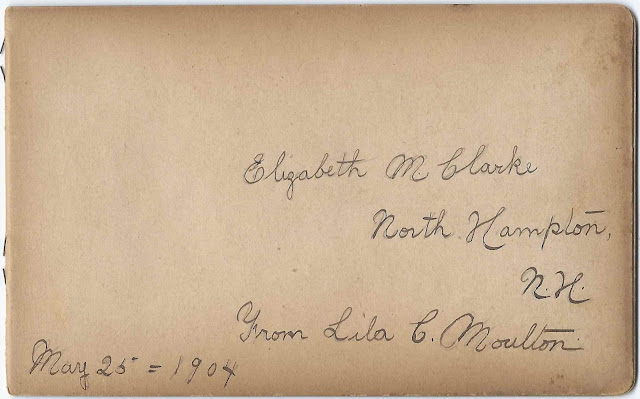 Elizabeth M Clarke
North Hampton,
N.H.
From Lila C. Moulton
May 25 = 1904